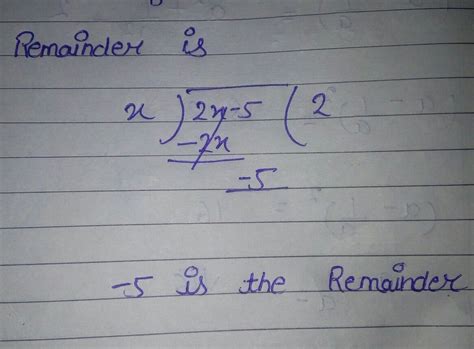 Remainder is
x ) 2x-5 ( 2
-2x
-5
-5 is the Remainder